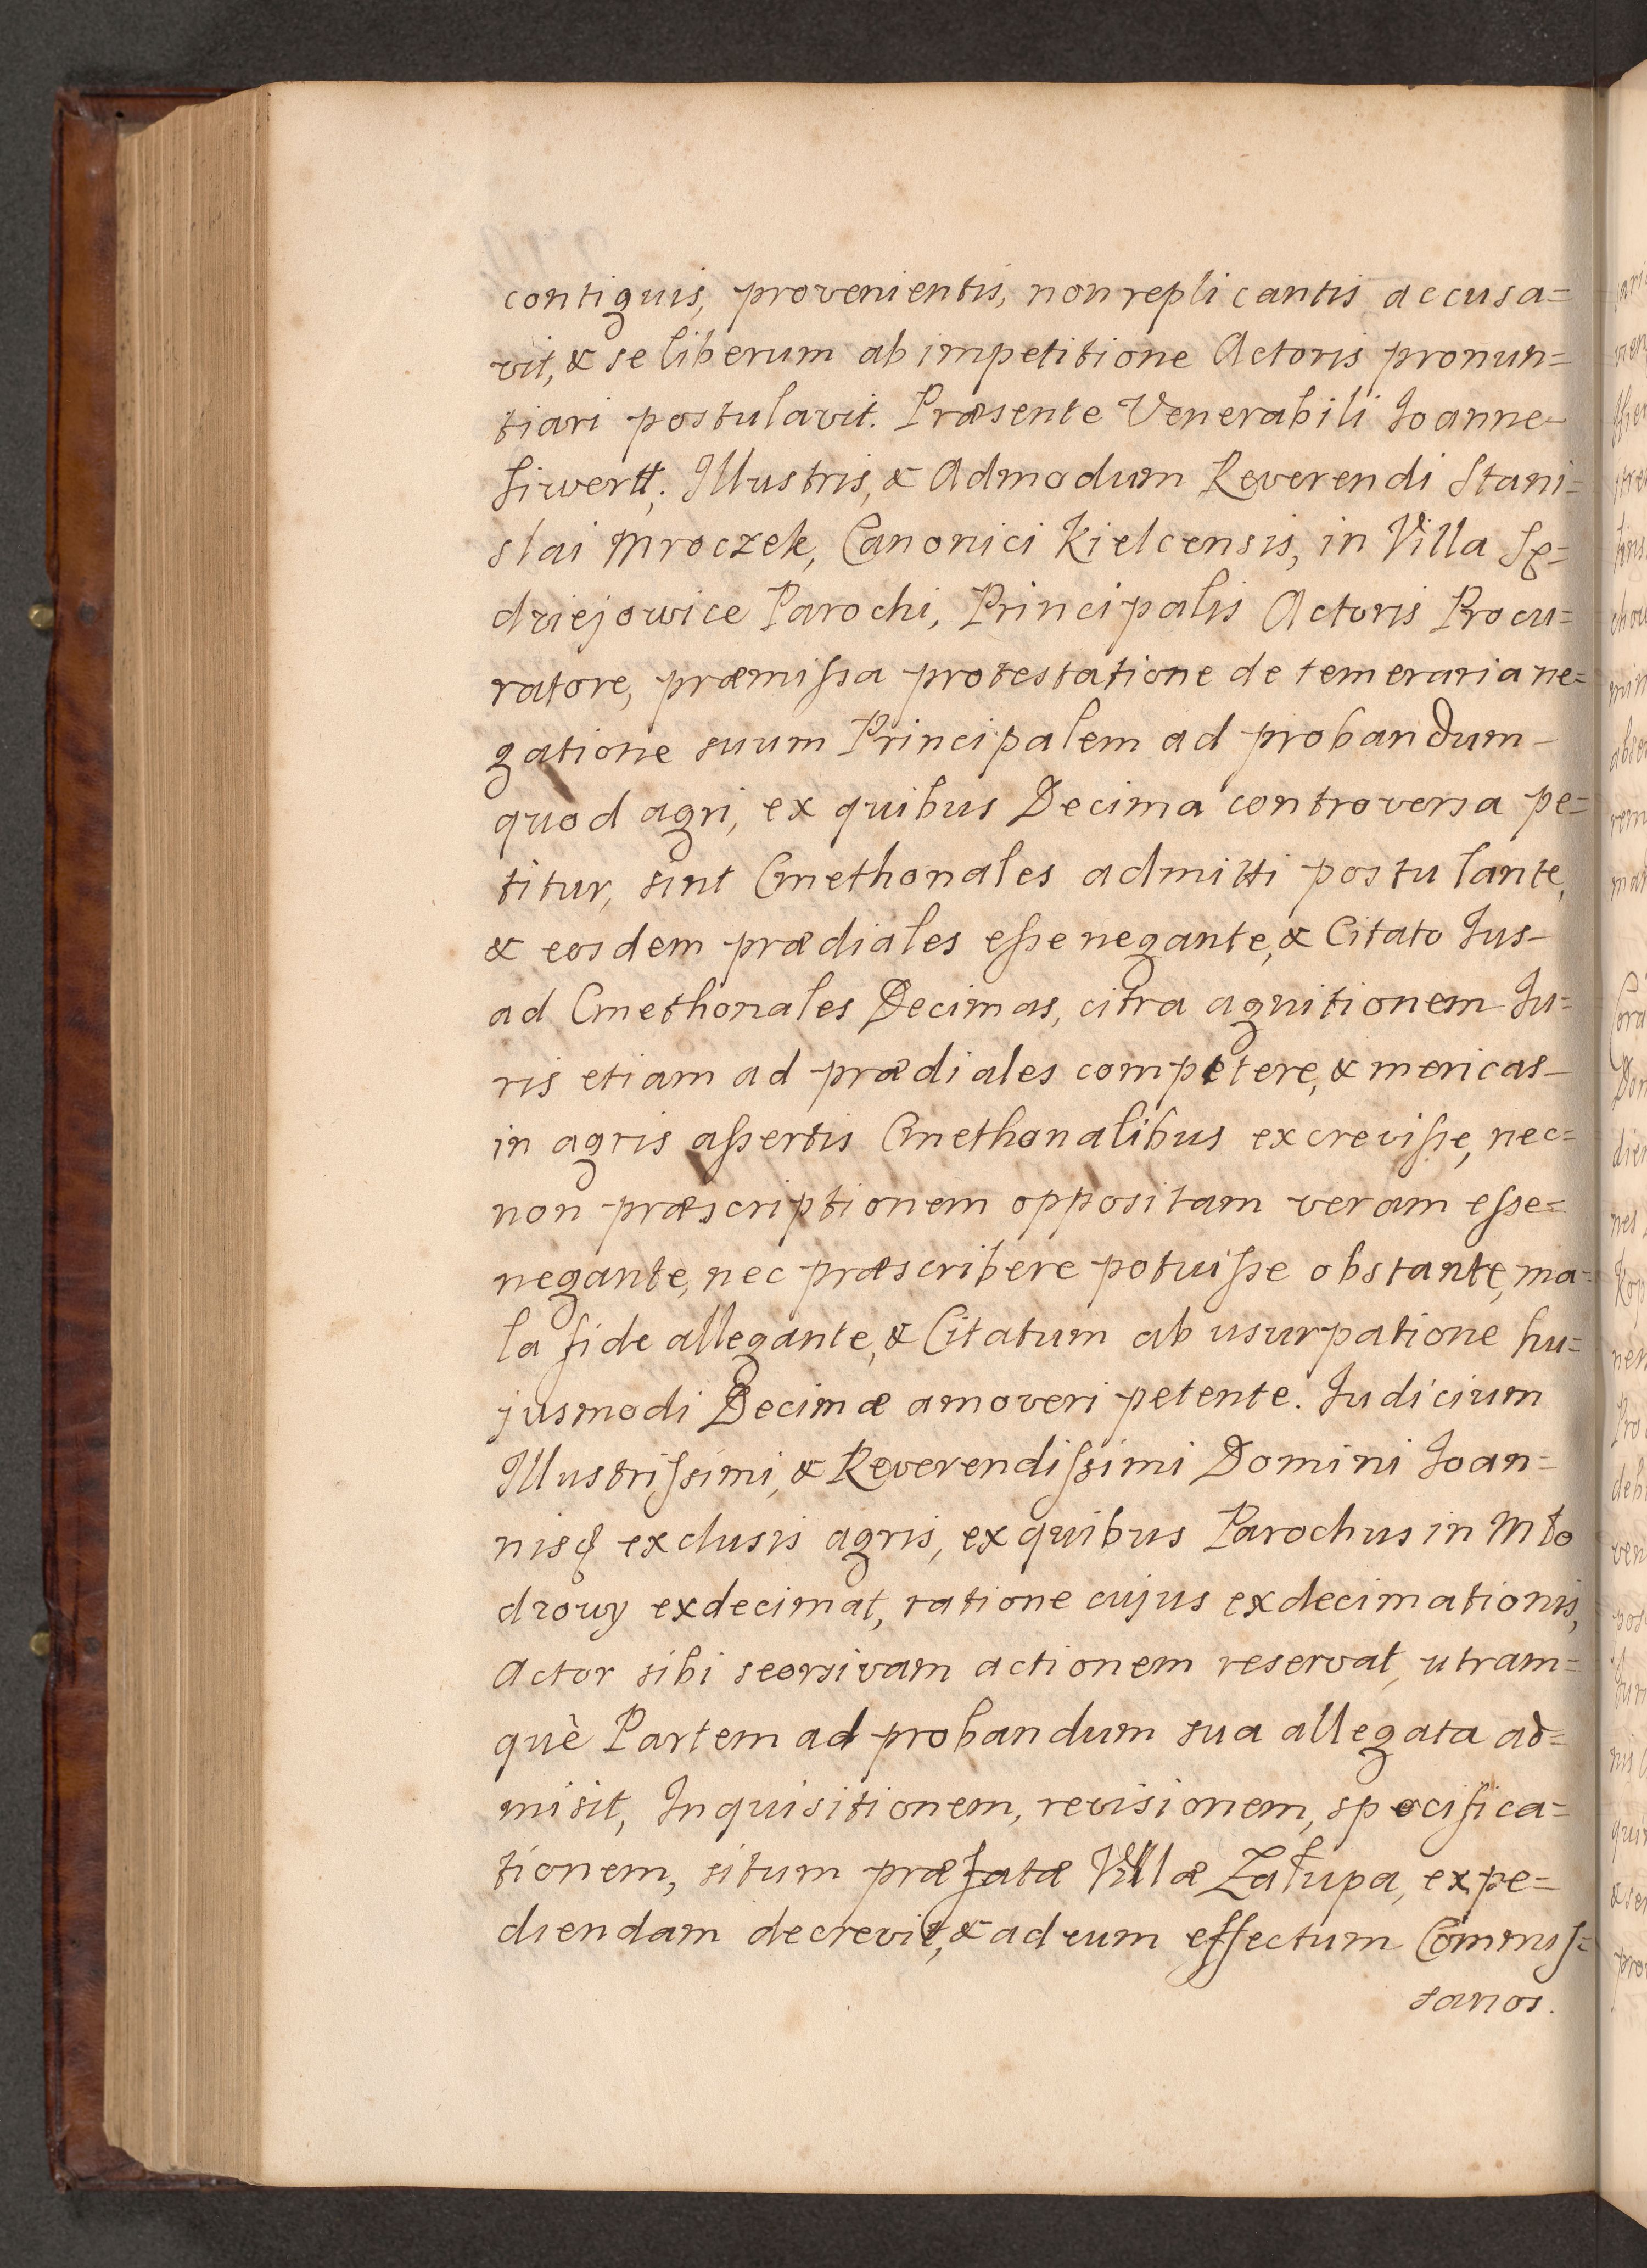 contiguis, provenientis, non replicantis accusa=
vit, & se liberum ab impetitione Actoris pronun=
tiari postulavit. Præsente Venerabili Joanne
Siwertt. Illustris, & Admodum Reverendi Stani=
slai Mroczek, Canonici Kielcensis, in Villa Sę=
dziejowice Parochi, Principalis Actoris Procu=
ratore, præmissa protestatione de temeraria ne=
gatione suum Principalem ad probandum
quod agri, ex quibus Decima controversa pe=
titur, sint Cmethonales admitti postulante,
& eosdem prædiales esse negante, & Citato Jus
ad Cmethonales Decimas, citra agnitionem Ju=
ris etiam ad prædiales competere, & mericas
in agris assertis Cmethonalibus excrevisse, nec=
non præscriptionem oppositam veram esse=
negante, nec præscribere potuisse obstante, ma=
la fide allegante, & Citatum ab usurpatione hu=
jusmodi Decimæ amoveri petente. Judicium
Illustrissimi, & Reverendissimi Domini Joan=
nis exclusis agris, ex quibus Parochus in Mło
dzowy exdecimat, ratione cujus exdecimationis,
Actor sibi seorsivam actionem reservat, utram=
què Partem ad probandum sua allegata ad=
misit, Inquisitionem, revisionem, specifica=
tionem, situm præfatæ Villæ Załupa, expe=
diendam decrevit, & ad eum effectum Commis=
sarios.